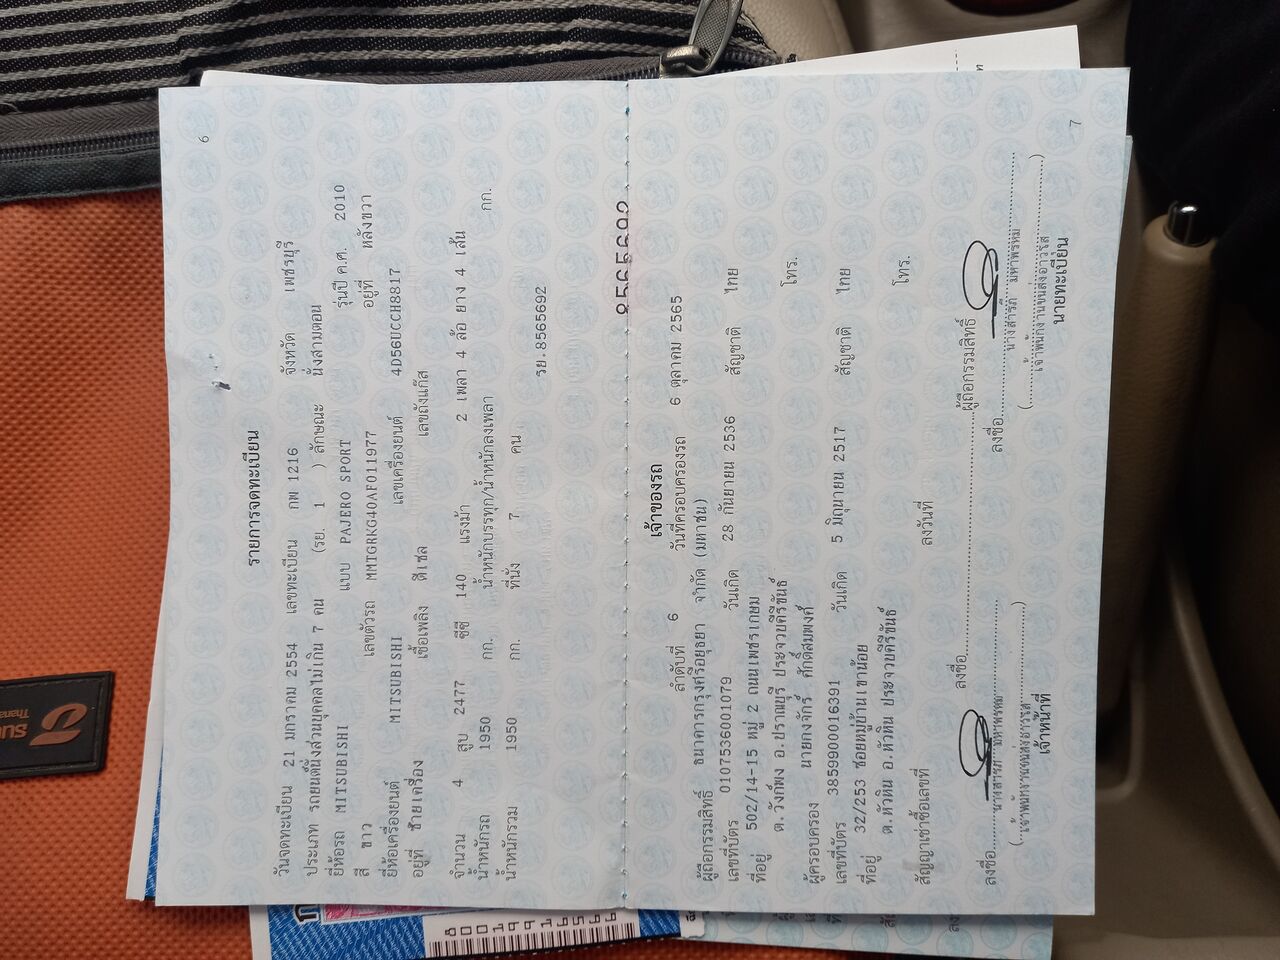 6
รายการจดทะเบียน
วันจดทะเบียน 21 มกราคม 2554 เลขทะเบียน กพ 1216 จังหวัด เพชรบุรี
ประเภท รถยนต์นั่งส่วนบุคคลไม่เกิน 7 คน (รย. 1 ) ลักษณะ นั่งสามตอน
ยี่ห้อรถ MITSUBISHI แบบ PAJERO SPORT รุ่นปี ค.ศ. 2010
สี ขาว เลขตัวรถ MMTGRKG40AF011977 อยู่ที่ หลังขวา
ยี่ห้อเครื่องยนต์ MITSUBISHI เลขเครื่องยนต์ 4D56UCCH8817
อยู่ที่ ซ้ายเครื่อง เชื้อเพลิง ดีเซล เลขถังแก๊ส
จำนวน 4 สูบ 2477 ซีซี 140 แรงม้า 2 เพลา 4 ล้อ ยาง 4 เส้น
น้ำหนักรถ 1950 กก. น้ำหนักบรรทุก/น้ำหนักลงเพลา กก.
น้ำหนักรวม 1950 กก. ที่นั่ง 7 คน
รย.8565692
8565692
7
เจ้าของรถ
ลำดับที่ 6 วันที่ครอบครองรถ 6 ตุลาคม 2565
ผู้ถือกรรมสิทธิ์ ธนาคารกรุงศรีอยุธยา จำกัด (มหาชน)
เลขที่บัตร 0107536001079 วันเกิด 28 กันยายน 2536 สัญชาติ ไทย
ที่อยู่ 502/14-15 หมู่ 2 ถนนเพชรเกษม
ต.วังก์พง อ.ปราณบุรี ประจวบคีรีขันธ์ โทร.
ผู้ครอบครอง นายกงจักร์ ศักดิ์สมพงศ์
เลขที่บัตร 3859900016391 วันเกิด 5 มิถุนายน 2517 สัญชาติ ไทย
ที่อยู่ 32/253 ซอยหมู่บ้านเขาน้อย
ต.หัวหิน อ.หัวหิน ประจวบคีรีขันธ์ โทร.
สัญญาเช่าซื้อเลขที่ ลงวันที่
ลงชื่อ ผู้ถือกรรมสิทธิ์
ลงชื่อ นางสารภี มหาพรหม ลงชื่อ นางสารภี มหาพรหม
(เจ้าพนักงานขนส่งอาวุโส) (เจ้าพนักงานขนส่งอาวุโส)
เจ้าหน้าที่ นายทะเบียน